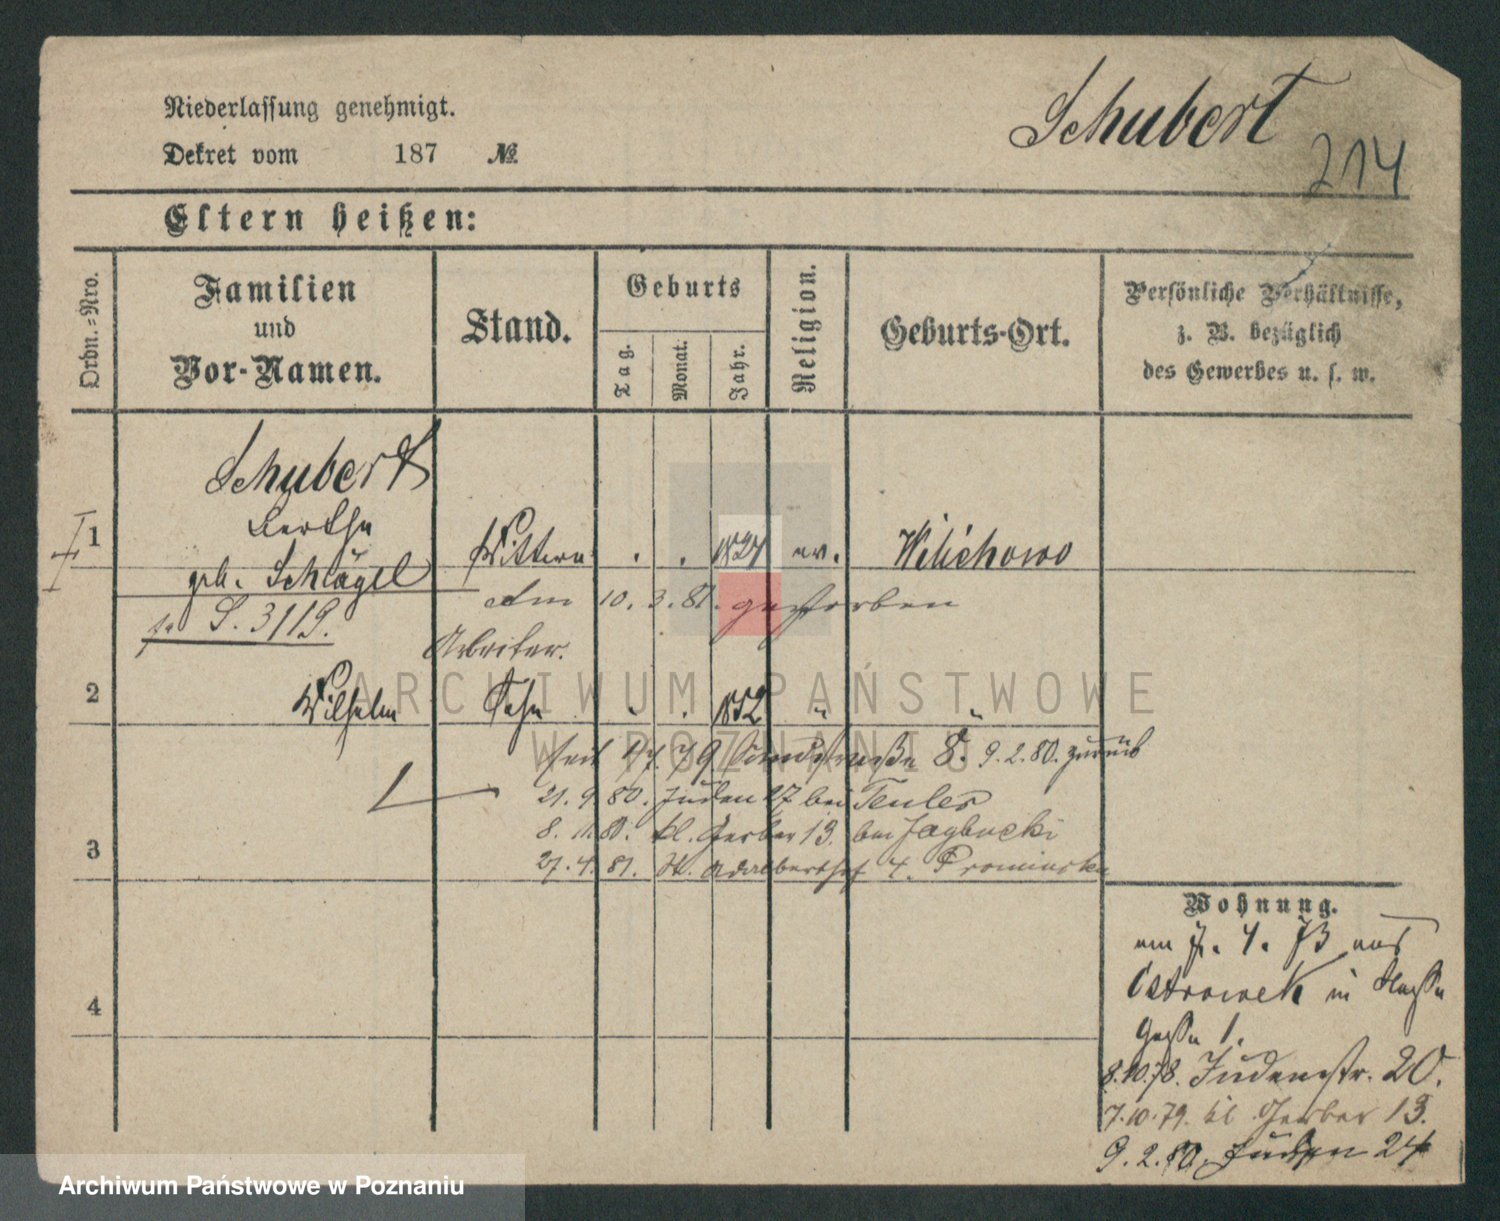 Niederlassung genehmigt.
Dekret vom 187 №
Schubert
214
Eltern heißen:
Ordn.-Nro.
Familien
und
Vor-Namen.
Stand.
Geburts
Tag.
Monat.
Jahr.
Religion.
Geburts-Ort.
Persönliche Verhältnisse,
z. B. bezüglich
des Gewerbes u. s. w.
Schubert
Bertha
1 geb. Schlägel Wittwe . . 1824 ev. Wilichowo
Am 10. 3. 81. gestorben
S. 3119.
Arbeiter.
2 Wilhelm Sohn " " 1852 " "
seit 79 8. 9.2.80. zurück
21. 9. 80. Juden 27 bei
8. 11. 80. kl. Gerber 13. bei Jagbucki
3 27. 4. 81. St. Adalberthof 4.
4
Wohnung.
am 7. 4. 73 aus
Ostrowek in
Gasse 1.
8.10.78. Judenstr. 20.
7.10.79. kl Gerber 13.
9.2.80. Juden 27
ARCHIWUM PAŃSTWOWE
W POZNANIU
Archiwum Państwowe w Poznaniu